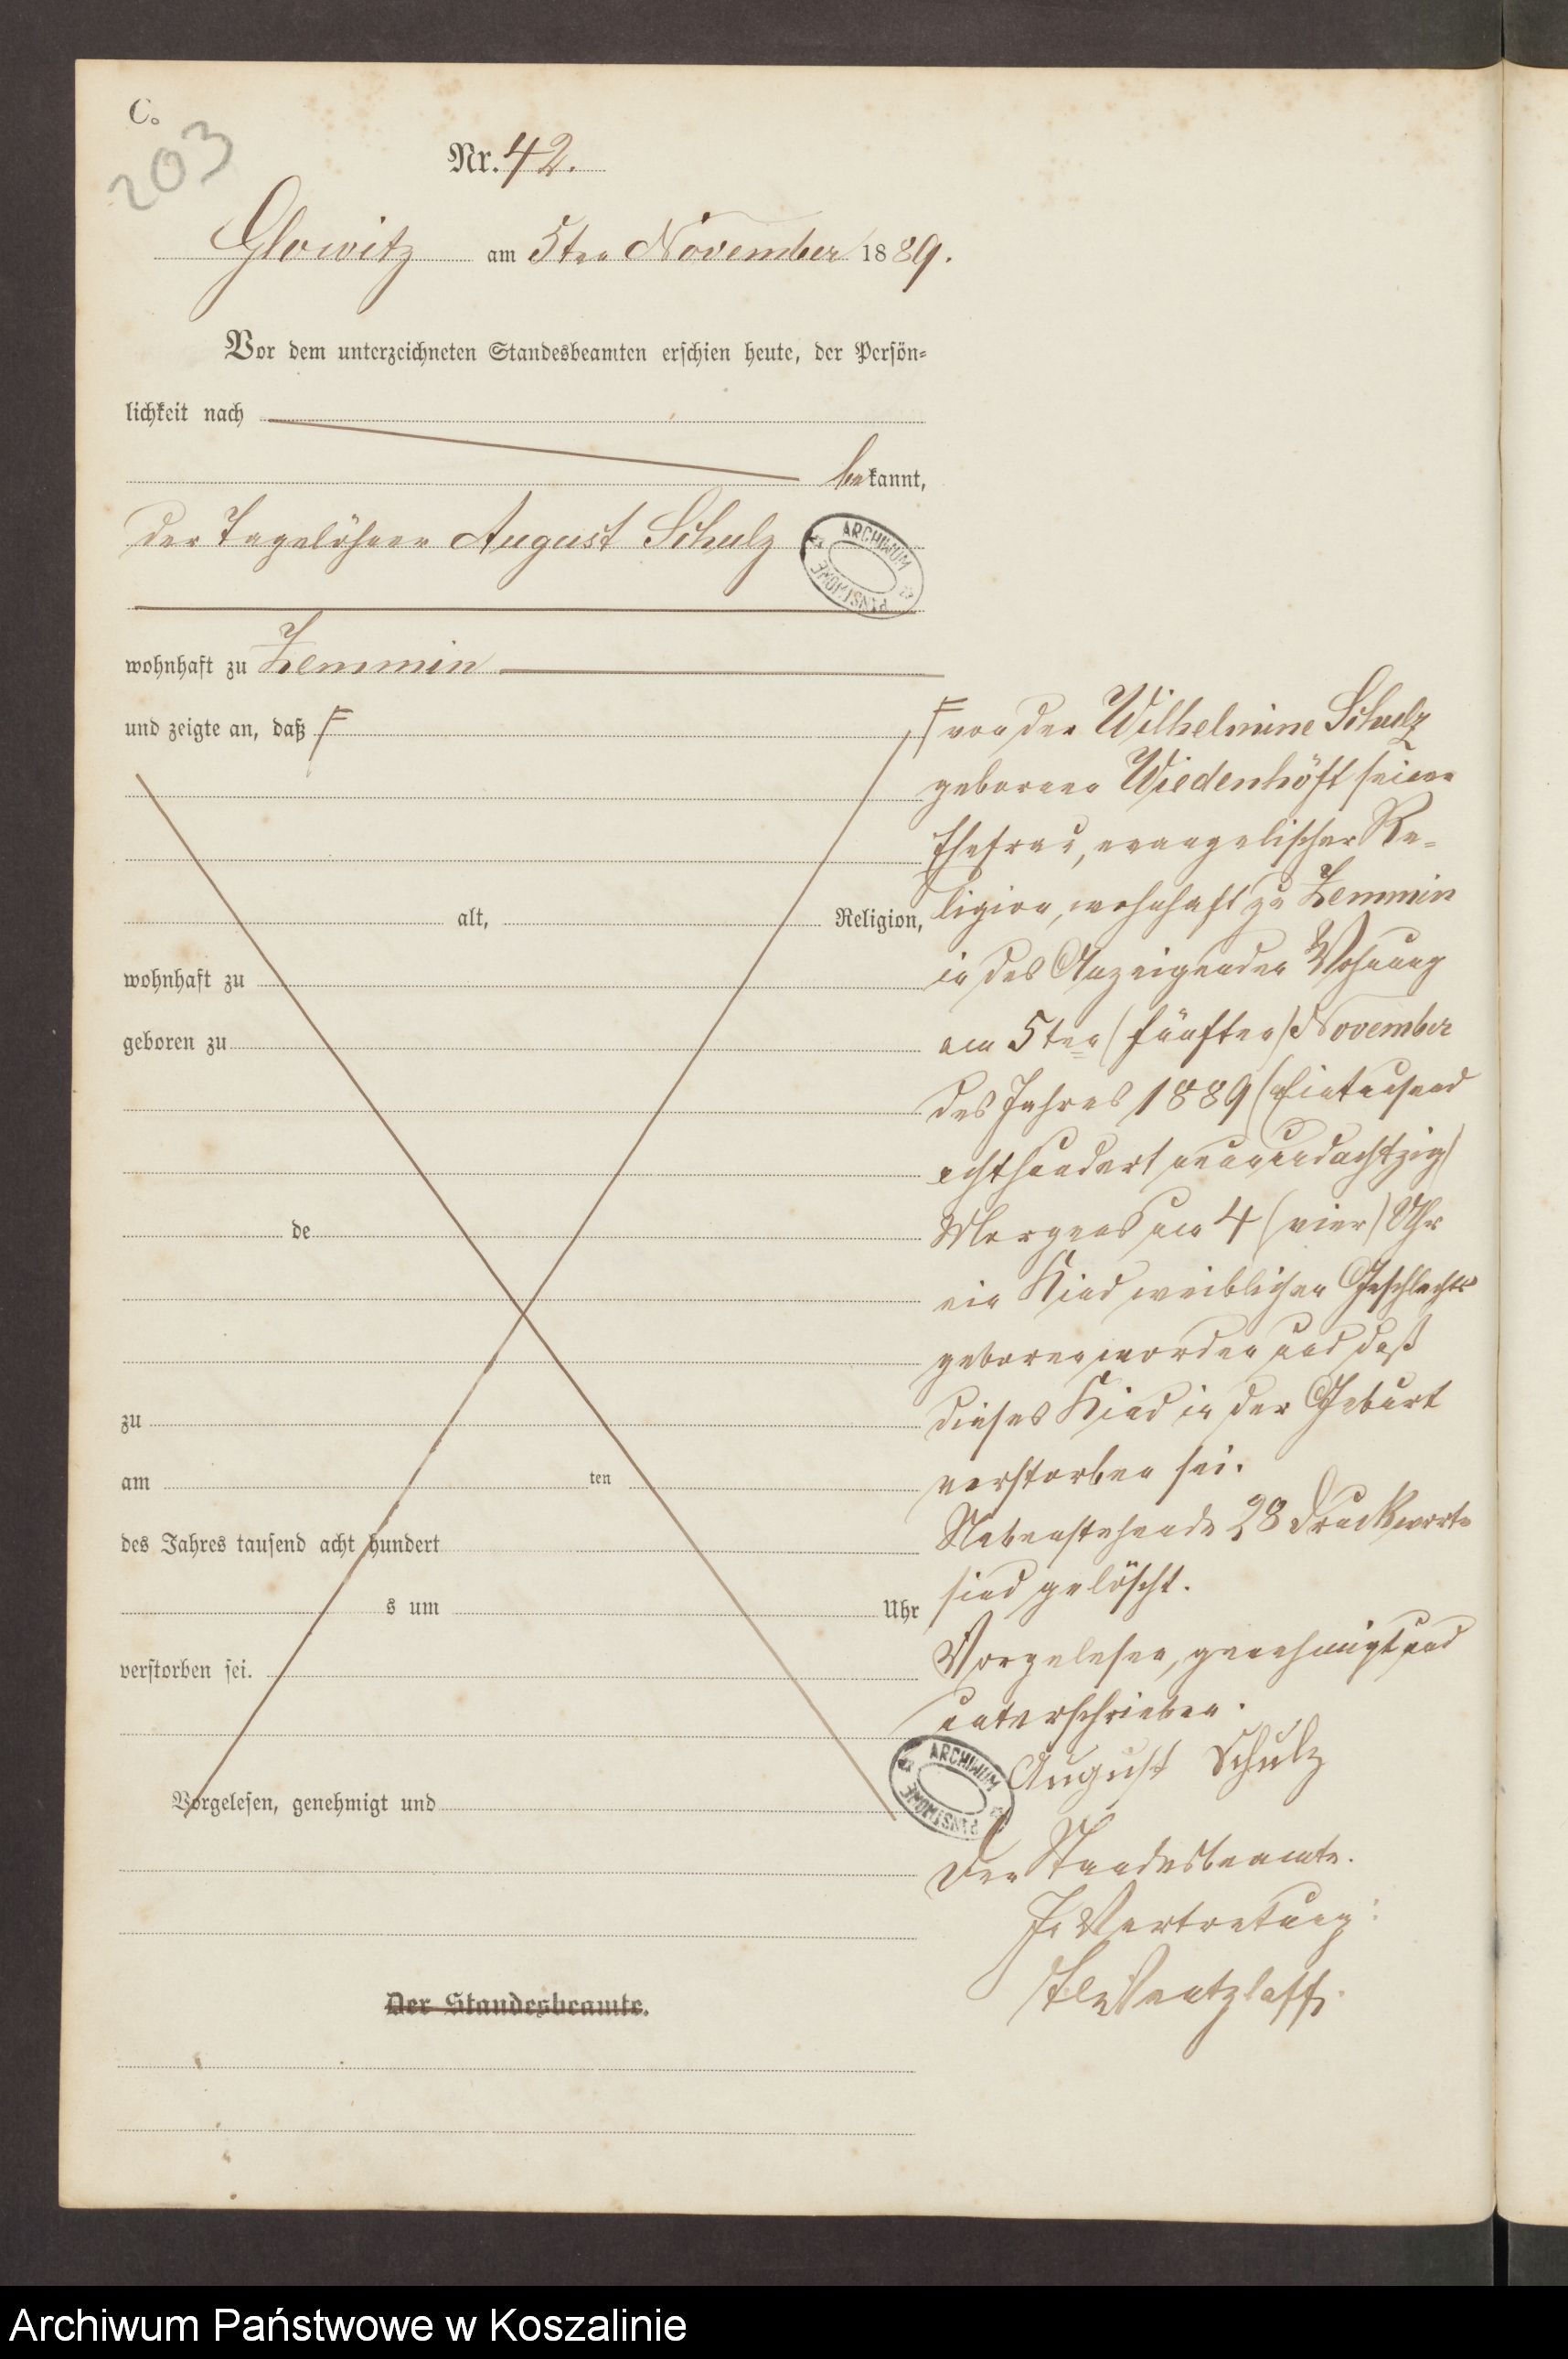 C.
203
Nr. 42.
Glowitz am 5ten November 1889.
Vor dem unterzeichneten Standesbeamten erschien heute, der Persön-
lichkeit nach
bekannt,
der Tagelöhner August Schulz
ARCHIWUM PAŃSTWOWE
wohnhaft zu Zemmin
und zeigte an, daß F
alt, Religion,
wohnhaft zu
geboren zu
de
zu
am ten
des Jahres tausend acht hundert
s um Uhr
verstorben sei.
Vorgelesen, genehmigt und
Der Standesbeamte.
F von der Wilhelmine Schulz
geborene Wiedenhöft seiner
Ehefrau, evangelischer Re-
ligion, wohnhaft zu Zemmin
in des Anzeigenden Wohnung
am 5ten (fünften) November
des Jahres 1889 (Eintausend
achthundert neunundachtzig)
Morgens um 4 (vier) Uhr
ein Kind weiblichen Geschlechts
geboren worden und daß
dieses Kind in der Geburt
verstorben sei.
Nebenstehende 28 Druckworte
sind gelöscht.
Vorgelesen, genehmigt und
unterschrieben.
August Schulz
ARCHIWUM PAŃSTWOWE
Der Standesbeamte.
In Vertretung:
Archiwum Państwowe w Koszalinie